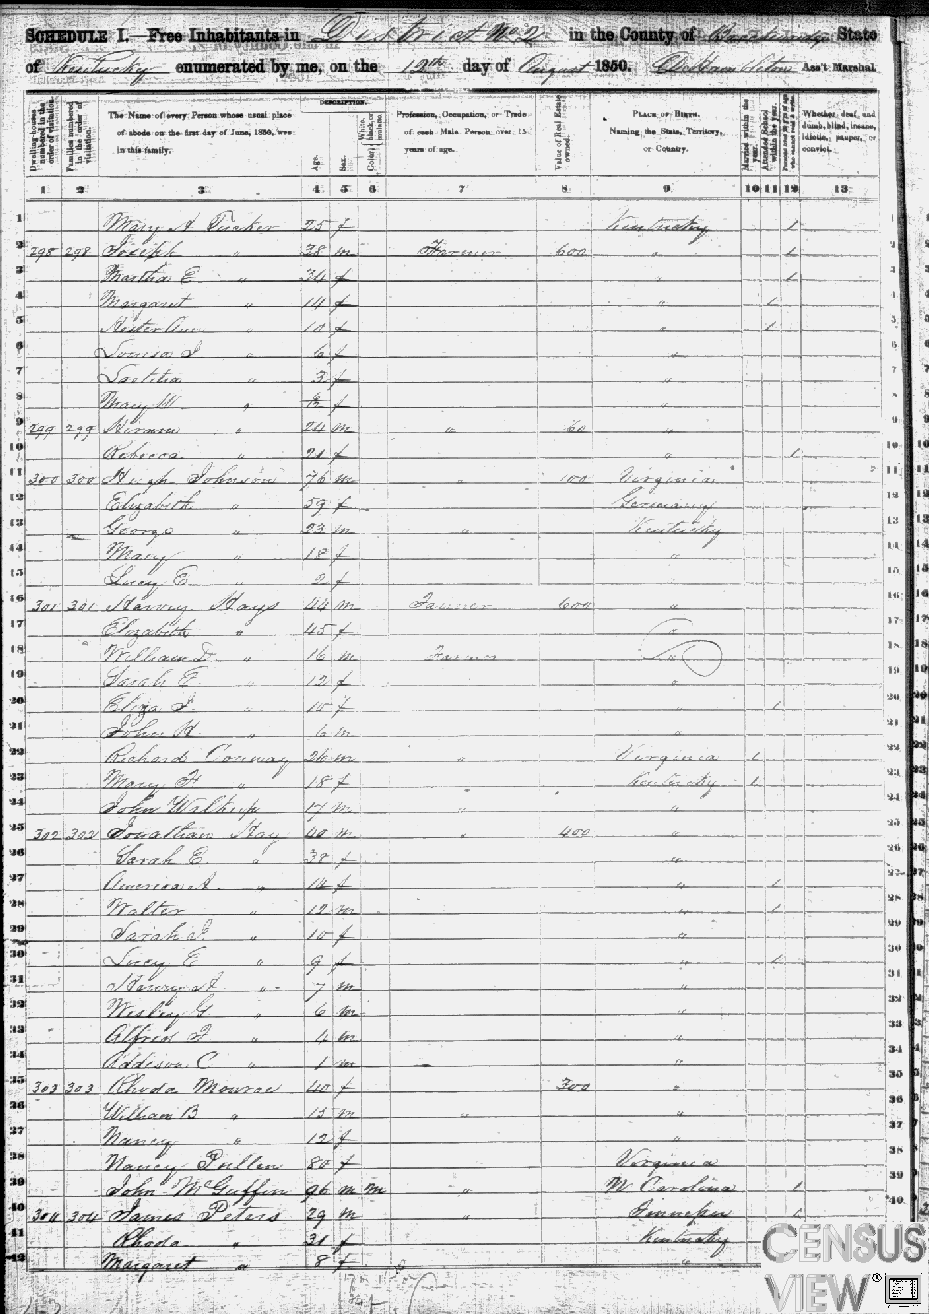 SCHEDULE I.—Free Inhabitants in District No 2 in the County of State
of Kentucky enumerated by me, on the 12th day of August 1850. Ass't Marshal.
Dwelling-houses numbered in the order of visitation.
Families numbered in the order of visitation.
The Name of every Person whose usual place of abode on the first day of June, 1850, was in this family.
DESCRIPTION.
Age.
Sex.
White, black, or mulatto.
Color
Profession, Occupation, or Trade of each Male Person over 15 years of age.
Value of Real Estate owned.
PLACE OF BIRTH. Naming the State, Territory, or Country.
Married within the year.
Attended School within the year.
Whether deaf and dumb, blind, insane, idiotic, pauper, or convict.
1 2 3 4 5 6 7 8 9 10 11 12 13
1 Mary A Tucker 25 f Kentucky 1
2 298 298 Joseph " 38 m Farmer 600 " 1
3 Martha E " 34 f " 1
4 Margaret " 14 f " 1
5 Hester Ann " 10 f " 1
6 Louisa J " 6 f "
7 Laetitia " 3 f "
8 Mary W " f "
9 299 299 " 24 m " 60 "
10 Rebecca " 21 f " 1
11 300 300 Hugh Johnson 76 m " 100 Virginia
12 Elizabeth " 59 f Germany
13 George " 23 m " Kentucky
14 Mary " 18 f "
15 Lucy E " 2 f
16 301 301 Harvey Hays 44 m Farmer 600 "
17 Elizabeth " 45 f "
18 William D " 16 m Farmer "
19 Sarah E " 12 f "
20 Eliza J " 10 f " 1
21 John H " 6 m "
22 Richard Conway 26 m " Virginia 1
23 Mary F " 18 f Kentucky 1
24 John Waltrip 17 m " "
25 302 302 Jonathan Hay 40 m " 400 "
26 Sarah E " 38 f "
27 America A " 14 f " 1
28 Walter " 12 m " 1
29 Sarah J " 10 f "
30 Lucy E " 9 f " 1
31 " 7 m "
32 Wesley G " 6 m "
33 Alfred " 4 m "
34 Addison C " 1 m "
35 303 303 Rhoda Monroe 40 f 300 "
36 William B " 15 m " "
37 Nancy " 12 f "
38 Nancy Pullen 80 f Virginia
39 John McGuffin 96 m m " N Carolina 1
40 304 304 James Peters 29 m " Tennessee 1
41 Rhoda " 31 f Kentucky
42 Margaret " 8 f "
CENSUS VIEW®